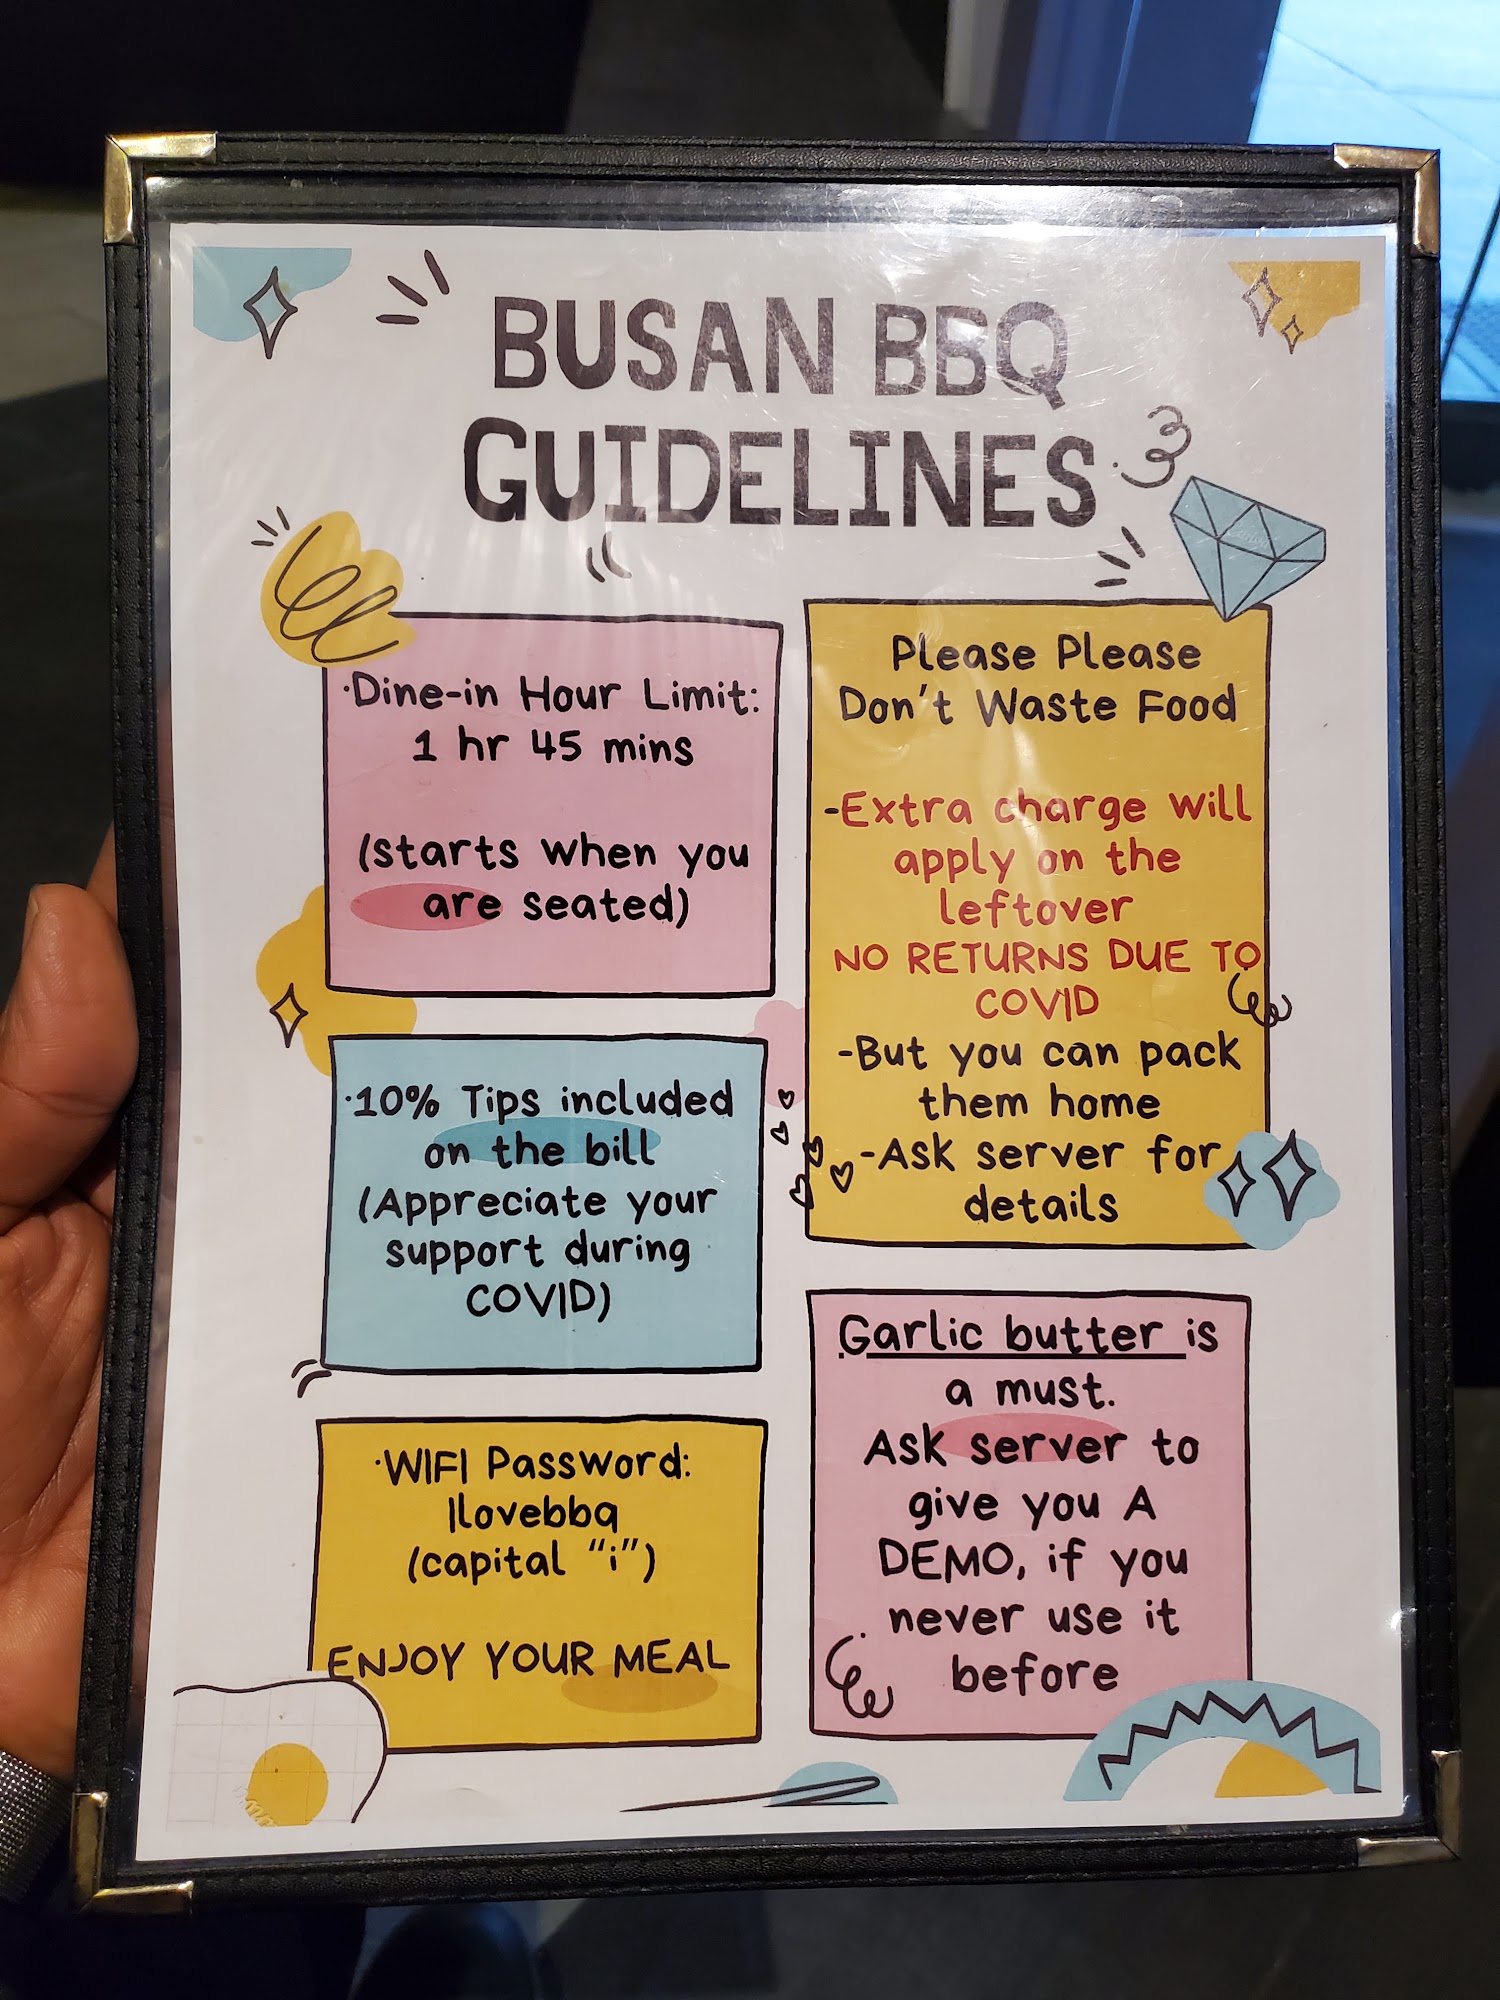 BUSAN BBQ
GUIDELINES
·Dine-in Hour Limit:
1 hr 45 mins
(starts when you
are seated)
·10% Tips included
on the bill
(Appreciate your
support during
COVID)
·WIFI Password:
Ilovebbq
(capital “i”)
ENJOY YOUR MEAL
Please Please
Don't Waste Food
-Extra charge will
apply on the
leftover
NO RETURNS DUE TO
COVID
-But you can pack
them home
-Ask server for
details
Garlic butter is
a must.
Ask server to
give you A
DEMO, if you
never use it
before